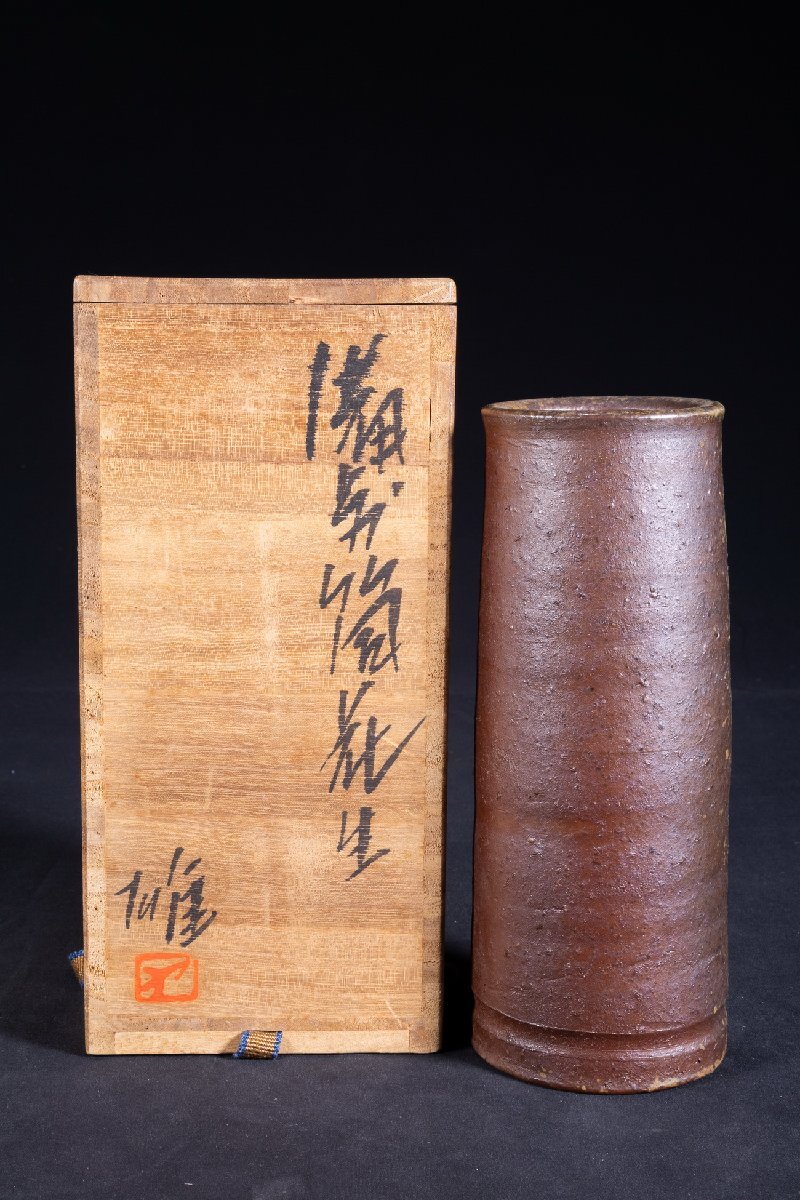 備前筒花生
雄